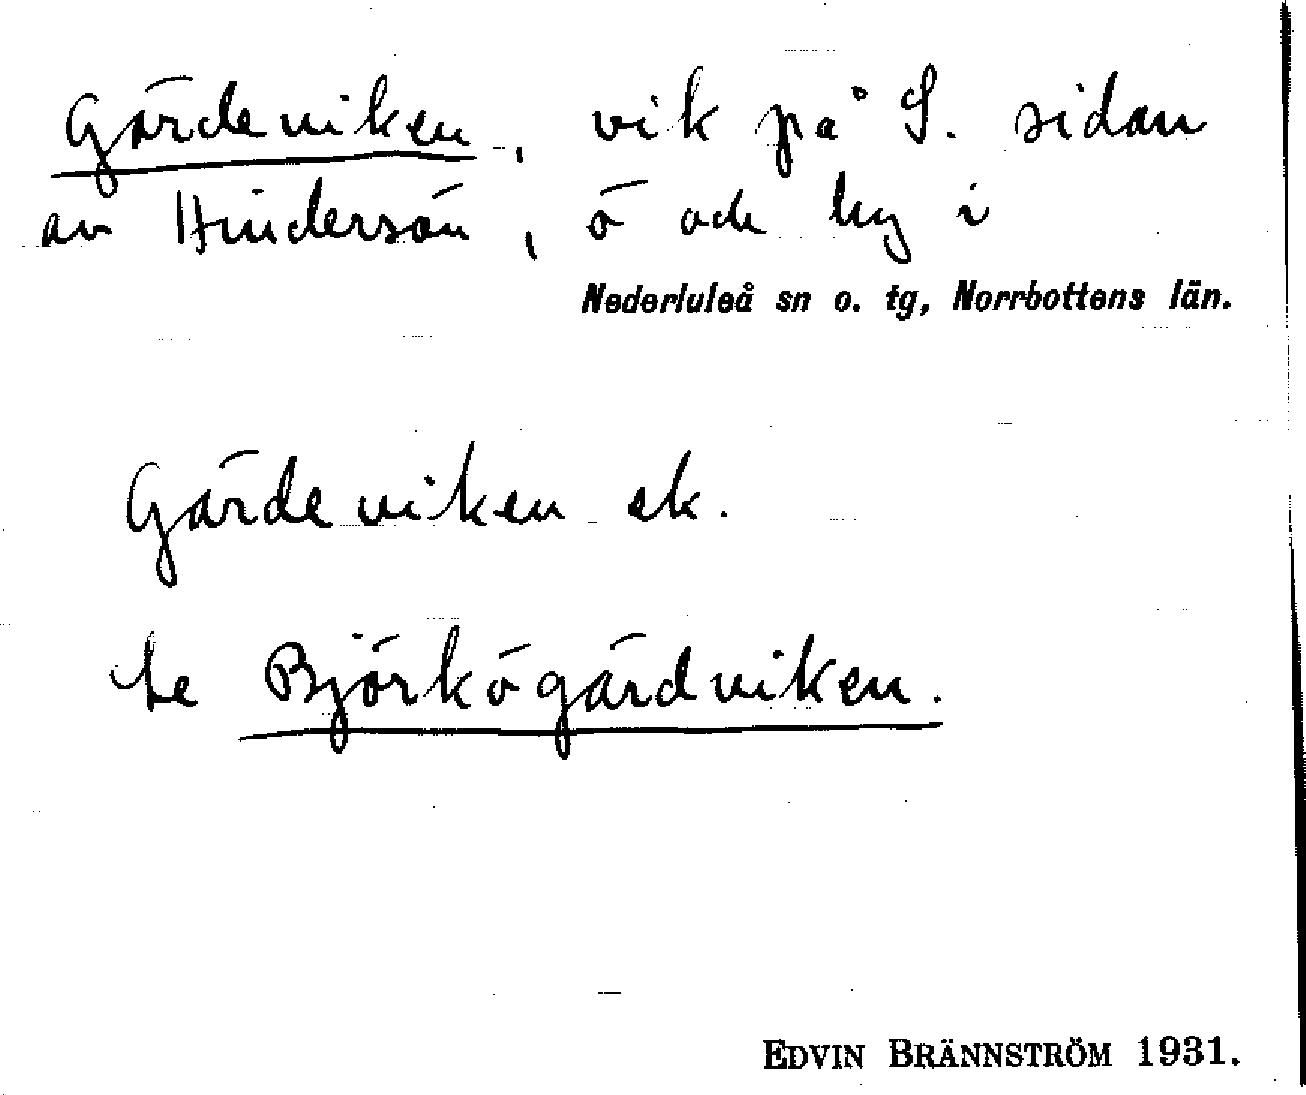 Gärdeviken, vik på S. sidan
av Hindersön, ö och by i
Nederluleå sn o. tg, Norrbottens län.
Gärdeviken ek.
Se Björkögärdviken.
EDVIN BRÄNNSTRÖM 1931.